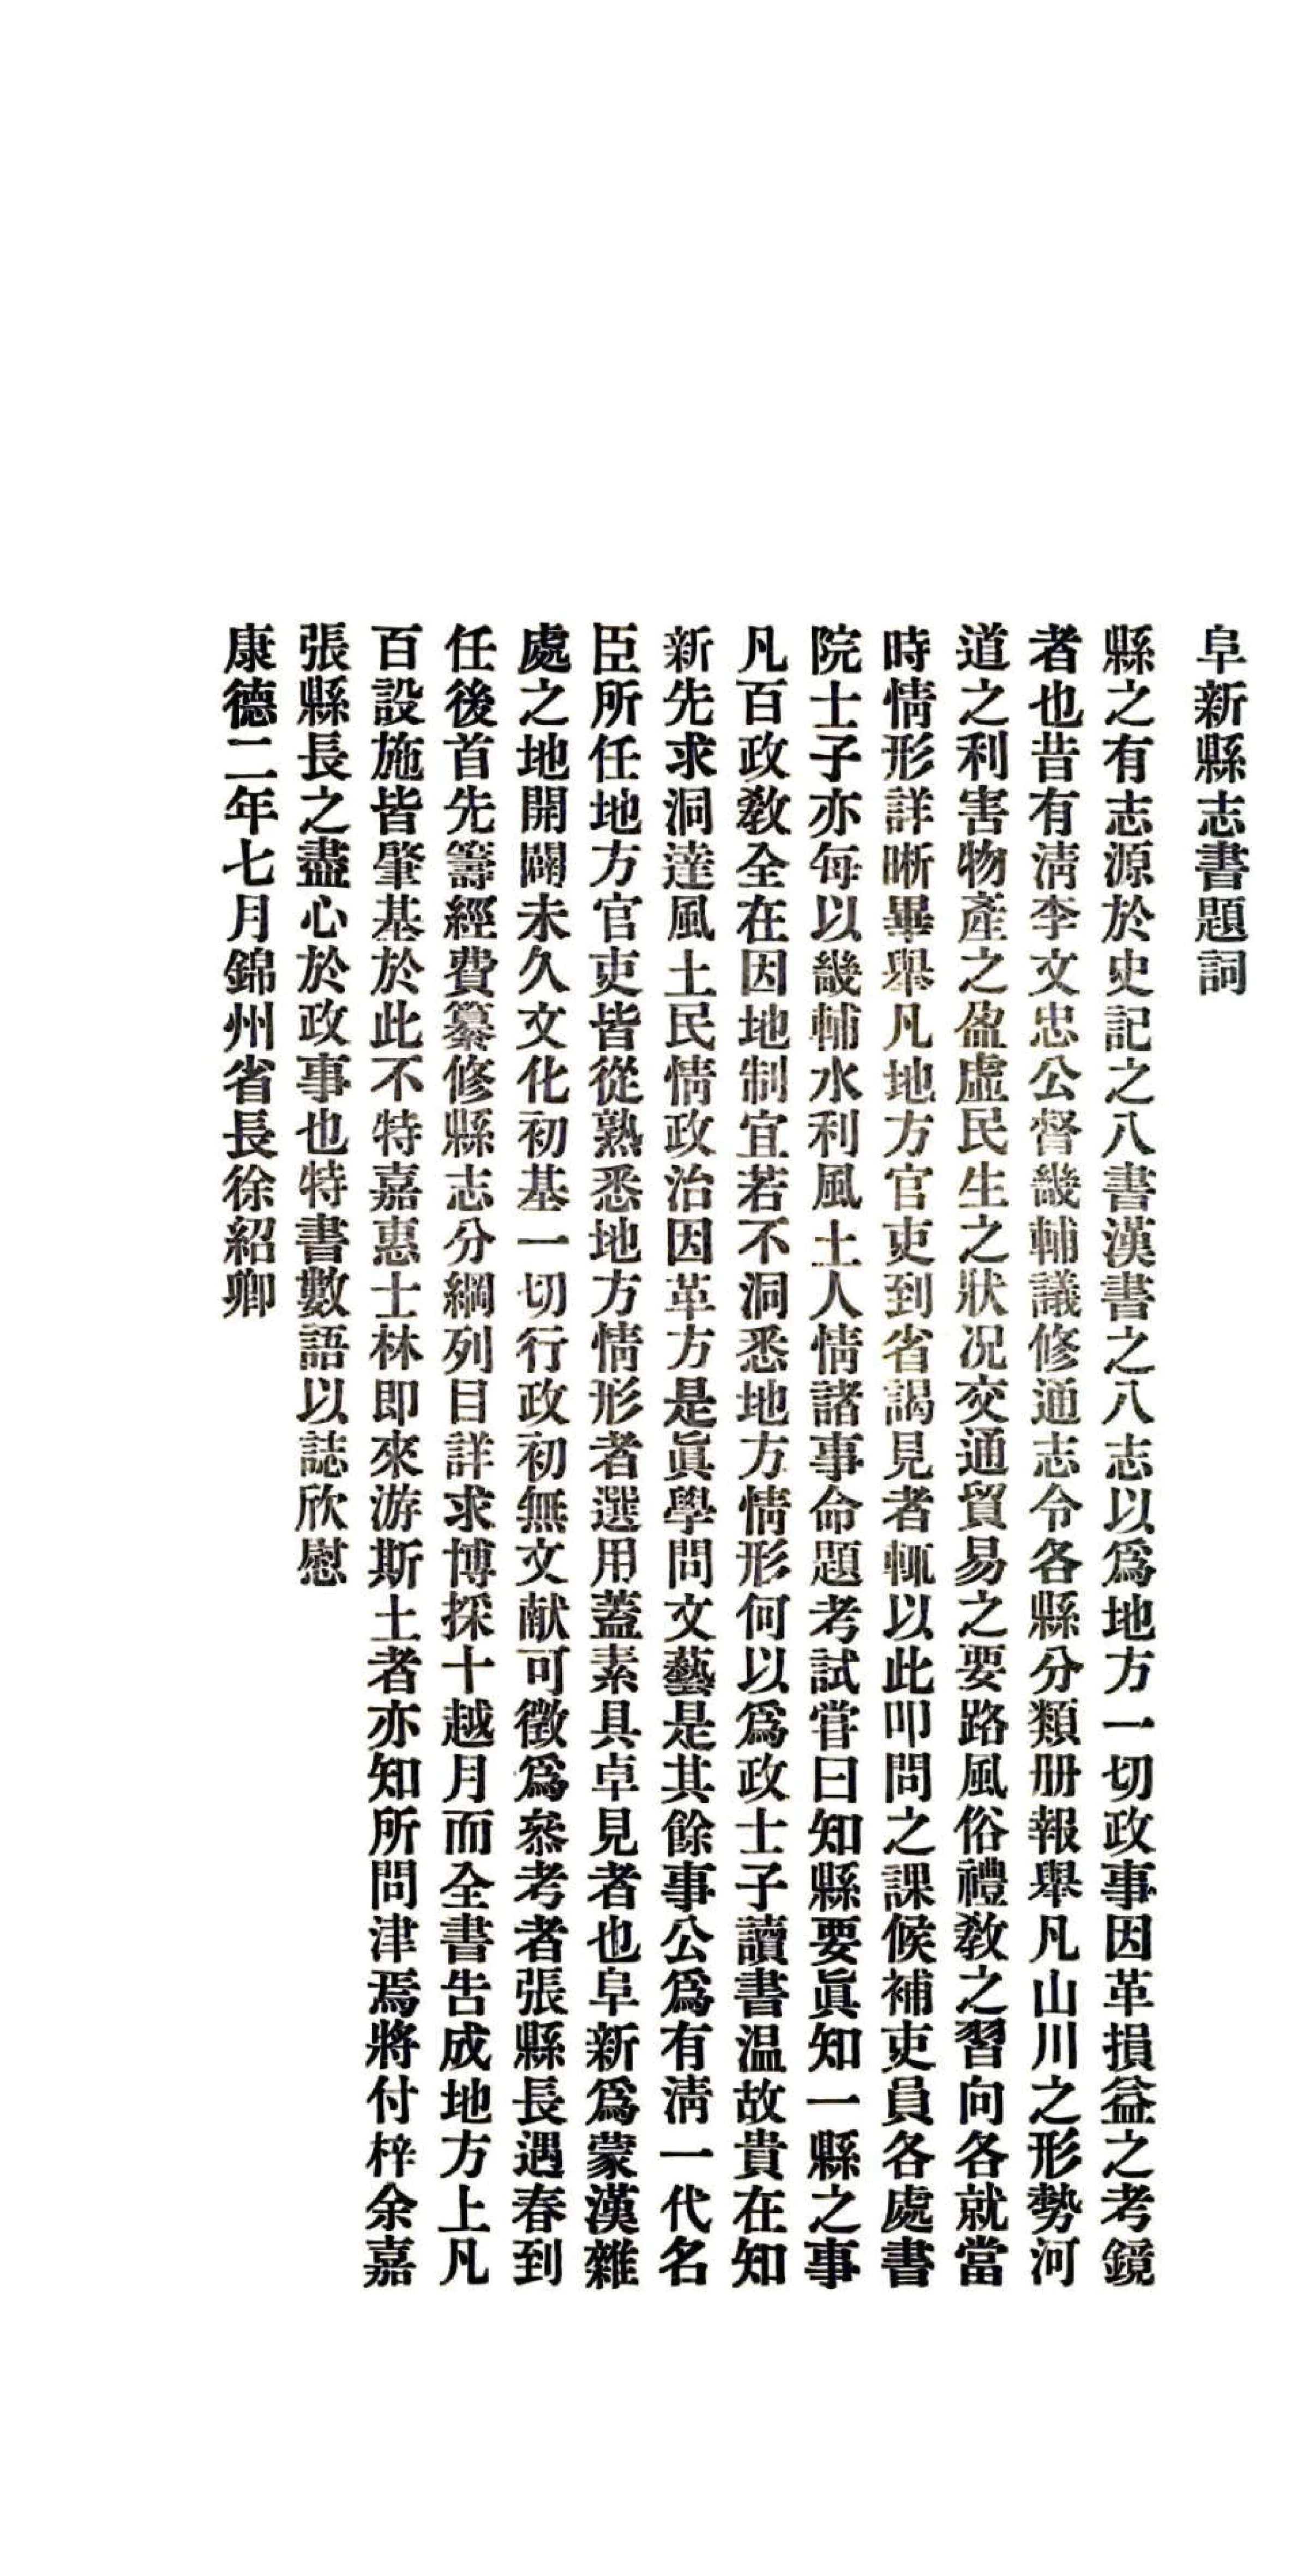 阜新縣志書題詞
縣之有志源於史記之八書漢書之八志以爲地方一切政事因革損益之考鏡
者也昔有淸李文忠公督畿輔議修通志令各縣分類册報舉凡山川之形勢河
道之利害物產之盈虛民生之狀况交通貿易之要路風俗禮敎之習向各就當
時情形詳晰畢舉凡地方官吏到省謁見者輒以此叩問之課候補吏員各處書
院士子亦每以畿輔水利風土人情諸事命題考試嘗曰知縣要眞知一縣之事
凡百政敎全在因地制宜若不洞悉地方情形何以爲政士子讀書温故貴在知
新先求洞達風土民情政治因革方是眞學問文藝是其餘事公爲有淸一代名
臣所任地方官吏皆從熟悉地方情形者選用蓋素具卓見者也阜新爲蒙漢雜
處之地開闢未久文化初基一切行政初無文献可徵爲叅考者張縣長遇春到
任後首先籌經費纂修縣志分綱列目詳求博採十越月而全書告成地方上凡
百設施皆肇基於此不特嘉惠士林即來游斯土者亦知所問津焉將付梓余嘉
張縣長之盡心於政事也特書數語以誌欣慰
康德二年七月錦州省長徐紹卿